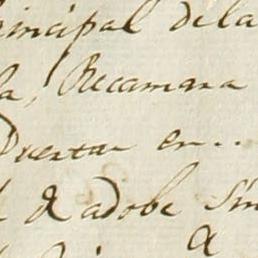 principal de la
la, Recamara
Puertas en..
de adobe sin